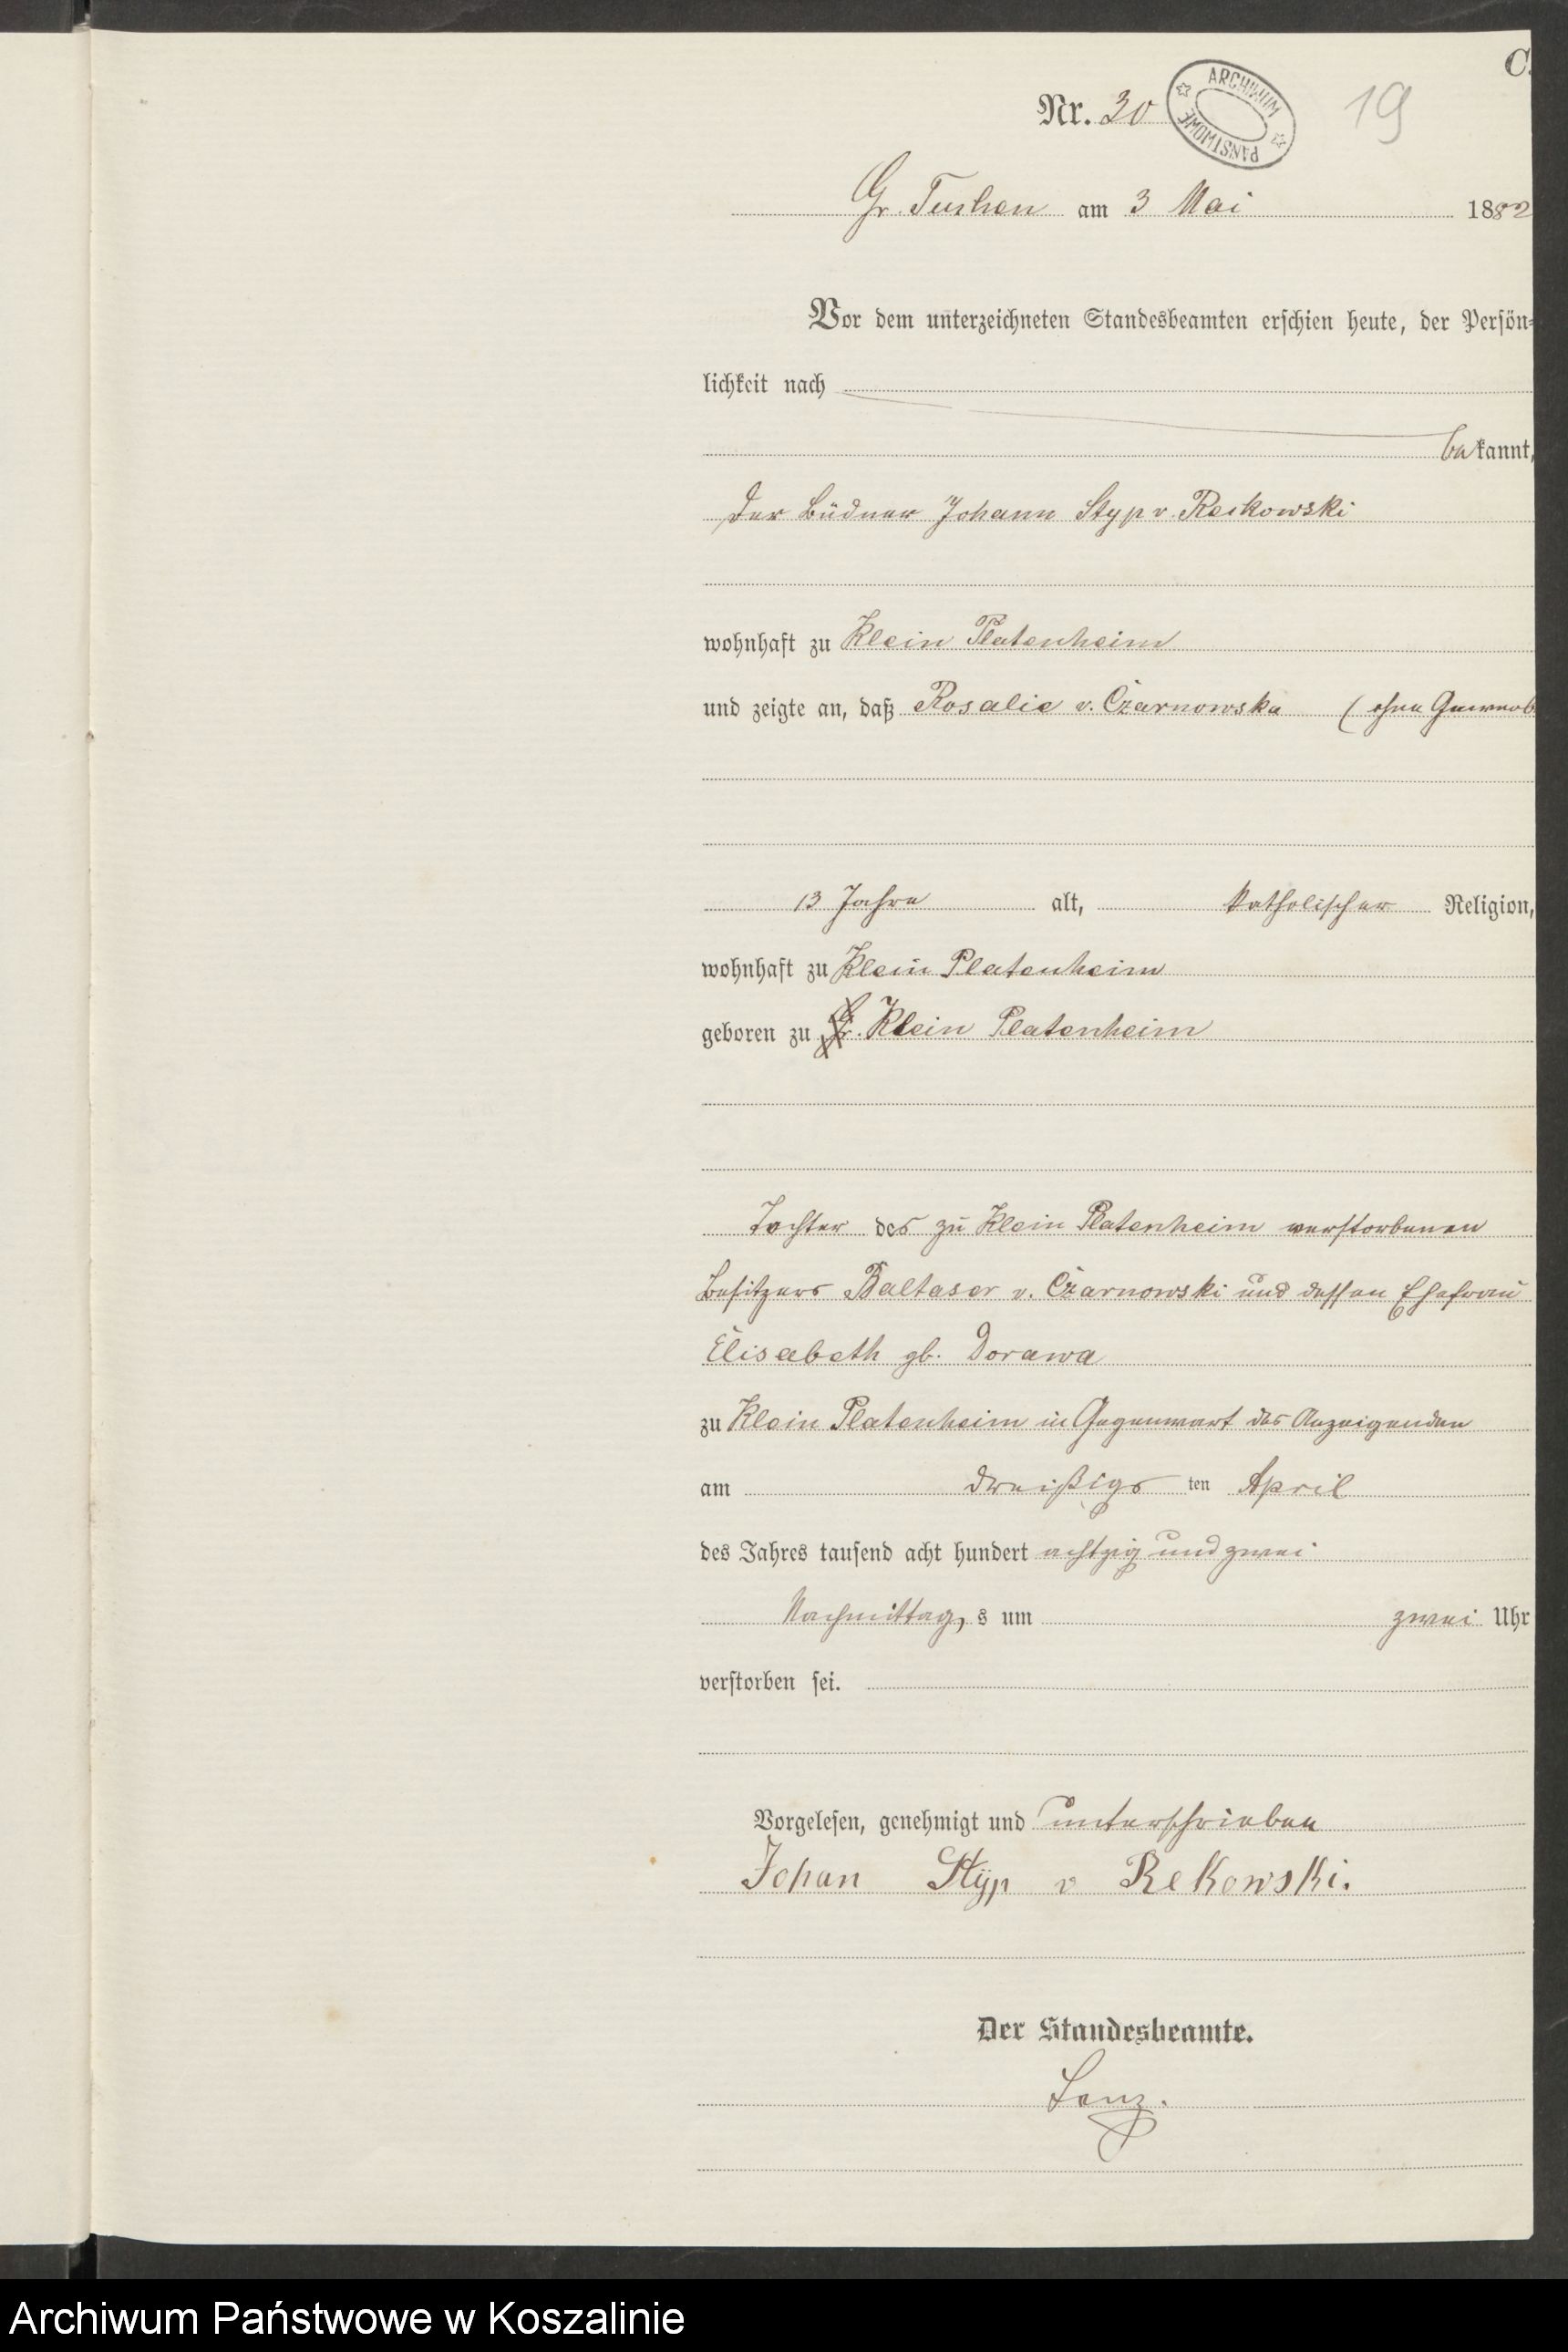 C.
Nr. 30
ARCHIWUM PAŃSTWOWE
19
Gr. Tuchen am 3 Mai 1882
Vor dem unterzeichneten Standesbeamten erschien heute, der Persön-
lichkeit nach
bekannt,
der Büdner Johann Styp v. Reikowski
wohnhaft zu Klein Platenheim
und zeigte an, daß Rosalie v. Czarnowska (ohne Gewerb
13 Jahre alt, katholischer Religion,
wohnhaft zu Klein Platenheim
geboren zu Gr. Klein Platenheim
Tochter des zu Klein Platenheim verstorbenen
Besitzers Baltaser v. Czarnowski und dessen Ehefrau
Elisabeth gb. Dorawa
zu Klein Platenheim in Gegenwart des Anzeigenden
am dreißigs ten April
des Jahres tausend acht hundert achtzig und zwei
Nachmittag, s um zwei Uhr
verstorben sei.
Vorgelesen, genehmigt und unterschrieben
Johan Styp v Rekowski.
Der Standesbeamte.
Lenz.
Archiwum Państwowe w Koszalinie